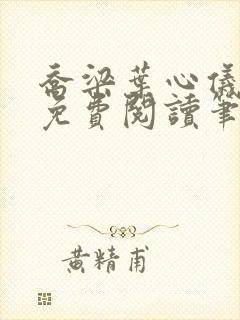 喬梁葉心儀
免費閱讀筆
黃精甫